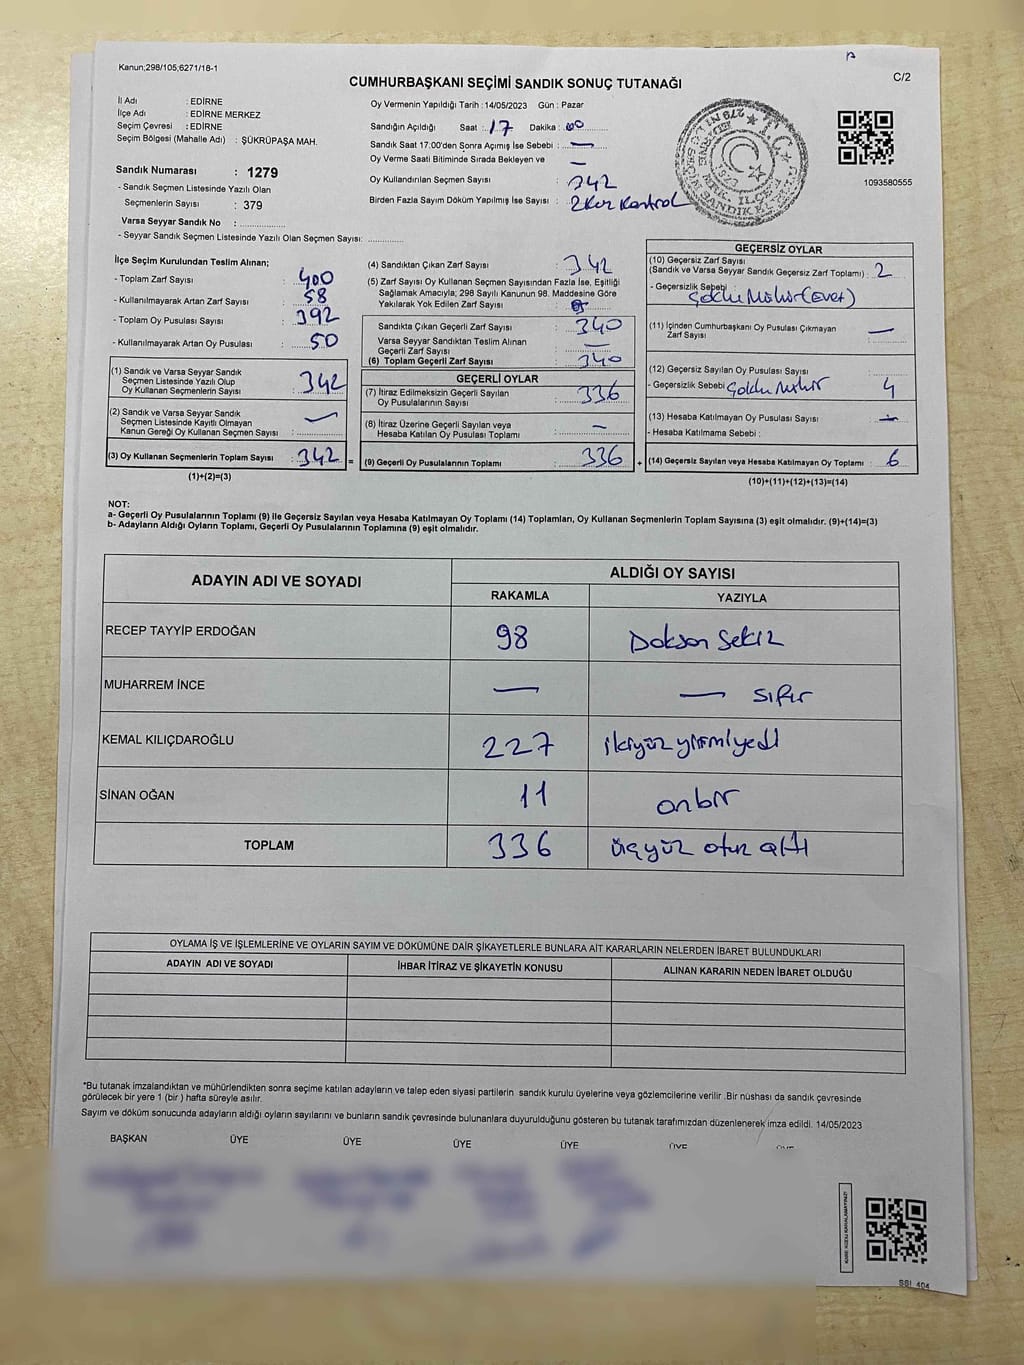 Kanun;298/105,6271/18-1
C/2
CUMHURBAŞKANI SEÇİMİ SANDIK SONUÇ TUTANAĞI
İl Adı : EDİRNE
İlçe Adı : EDİRNE MERKEZ
Seçim Çevresi : EDİRNE
Seçim Bölgesi (Mahalle Adı) : ŞÜKRÜPAŞA MAH.
Sandık Numarası : 1279
- Sandık Seçmen Listesinde Yazılı Olan
Seçmenlerin Sayısı : 379
Varsa Seyyar Sandık No : ..................
- Seyyar Sandık Seçmen Listesinde Yazılı Olan Seçmen Sayısı: ..............
Oy Vermenin Yapıldığı Tarih : 14/05/2023 Gün : Pazar
Sandığın Açıldığı Saat : 17 Dakika : 00
Sandık Saat 17.00'den Sonra Açımış İse Sebebi : —
Oy Verme Saati Bitiminde Sırada Bekleyen ve —
Oy Kullandırılan Seçmen Sayısı : 342
Birden Fazla Sayım Döküm Yapılmış İse Sayısı : 2 Kez Kontrol
1093580555
İlçe Seçim Kurulundan Teslim Alınan;
- Toplam Zarf Sayısı : 400
- Kullanılmayarak Artan Zarf Sayısı : 58
- Toplam Oy Pusulası Sayısı : 392
- Kullanılmayarak Artan Oy Pusulası : 50
(1) Sandık ve Varsa Seyyar Sandık
Seçmen Listesinde Yazılı Olup
Oy Kullanan Seçmenlerin Sayısı : 342
(2) Sandık ve Varsa Seyyar Sandık
Seçmen Listesinde Kayıtlı Olmayan
Kanun Gereği Oy Kullanan Seçmen Sayısı : —
(3) Oy Kullanan Seçmenlerin Toplam Sayısı : 342 =
(1)+(2)=(3)
(4) Sandıktan Çıkan Zarf Sayısı : 342
(5) Zarf Sayısı Oy Kullanan Seçmen Sayısından Fazla İse, Eşitliği
Sağlamak Amacıyla; 298 Sayılı Kanunun 98. Maddesine Göre
Yakılarak Yok Edilen Zarf Sayısı :
Sandıkta Çıkan Geçerli Zarf Sayısı : 340
Varsa Seyyar Sandıktan Teslim Alınan
Geçerli Zarf Sayısı : —
(6) Toplam Geçerli Zarf Sayısı : 340
GEÇERLİ OYLAR
(7) İtiraz Edilmeksizin Geçerli Sayılan
Oy Pusulalarının Sayısı : 336
(8) İtiraz Üzerine Geçerli Sayılan veya
Hesaba Katılan Oy Pusulası Toplamı : —
(9) Geçerli Oy Pusulalarının Toplamı : 336 +
GEÇERSİZ OYLAR
(10) Geçersiz Zarf Sayısı
(Sandık ve Varsa Seyyar Sandık Geçersiz Zarf Toplamı) : 2
- Geçersizlik Sebebi
(11) İçinden Cumhurbaşkanı Oy Pusulası Çıkmayan
Zarf Sayısı : —
(12) Geçersiz Sayılan Oy Pusulası Sayısı :
- Geçersizlik Sebebi 4
(13) Hesaba Katılmayan Oy Pusulası Sayısı : —
- Hesaba Katılmama Sebebi :
(14) Geçersiz Sayılan veya Hesaba Katılmayan Oy Toplamı : 6
(10)+(11)+(12)+(13)=(14)
NOT:
a- Geçerli Oy Pusulalarının Toplamı (9) ile Geçersiz Sayılan veya Hesaba Katılmayan Oy Toplamı (14) Toplamları, Oy Kullanan Seçmenlerin Toplam Sayısına (3) eşit olmalıdır. (9)+(14)=(3)
b- Adayların Aldığı Oyların Toplamı, Geçerli Oy Pusulalarının Toplamına (9) eşit olmalıdır.
ADAYIN ADI VE SOYADI
ALDIĞI OY SAYISI
RAKAMLA YAZIYLA
RECEP TAYYİP ERDOĞAN 98 Doksan Sekiz
MUHARREM İNCE — — Sıfır
KEMAL KILIÇDAROĞLU 227 ikiyüz yirmiyedi
SİNAN OĞAN 11 onbir
TOPLAM 336 üçyüz otuz altı
OYLAMA İŞ VE İŞLEMLERİNE VE OYLARIN SAYIM VE DÖKÜMÜNE DAİR ŞİKAYETLERLE BUNLARA AİT KARARLARIN NELERDEN İBARET BULUNDUKLARI
ADAYIN ADI VE SOYADI İHBAR İTİRAZ VE ŞİKAYETİN KONUSU ALINAN KARARIN NEDEN İBARET OLDUĞU
*Bu tutanak imzalandıktan ve mühürlendikten sonra seçime katılan adayların ve talep eden siyasi partilerin sandık kurulu üyelerine veya gözlemcilerine verilir .Bir nüshası da sandık çevresinde
görülecek bir yere 1 (bir ) hafta süreyle asılır.
Sayım ve döküm sonucunda adayların aldığı oyların sayılarını ve bunların sandık çevresinde bulunanlara duyurulduğunu gösteren bu tutanak tarafımızdan düzenlenerek imza edildi. 14/05/2023
BAŞKAN ÜYE ÜYE ÜYE ÜYE ÜYE
SSI_404